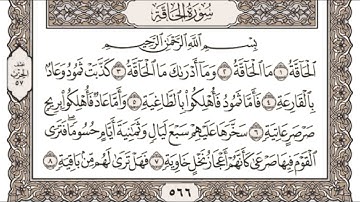 سُورَةُ الحَاقَّةِ
بِسْمِ اللَّهِ الرَّحْمَٰنِ الرَّحِيمِ
الْحَاقَّةُ ١ مَا الْحَاقَّةُ ٢ وَمَا أَدْرَىٰكَ مَا الْحَاقَّةُ ٣ كَذَّبَتْ ثَمُودُ وَعَادٌ
بِالْقَارِعَةِ ٤ فَأَمَّا ثَمُودُ فَأُهْلِكُوا بِالطَّاغِيَةِ ٥ وَأَمَّا عَادٌ فَأُهْلِكُوا بِرِيحٍ
صَرْصَرٍ عَاتِيَةٍ ٦ سَخَّرَهَا عَلَيْهِمْ سَبْعَ لَيَالٍ وَثَمَٰنِيَةَ أَيَّامٍ حُسُومًا فَتَرَى
الْقَوْمَ فِيهَا صَرْعَىٰ كَأَنَّهُمْ أَعْجَازُ نَخْلٍ خَاوِيَةٍ ٧ فَهَلْ تَرَىٰ لَهُم مِّن بَاقِيَةٍ ٨
٥٦٦
الحزب
٥٧